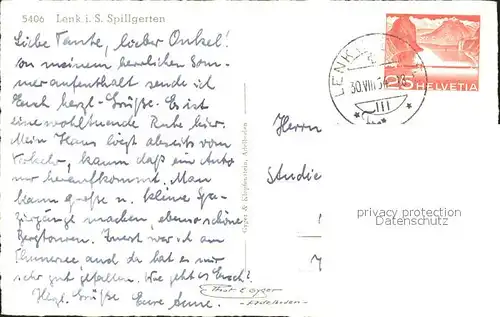 5406 Lenk i. S. Spillgerten
Liebe Tante, lieber Onkel!
Von meinem herrlichen Som-
meraufenthalt sende ich
Euch herzl. Grüße. Es ist
eine wohltuende Ruhe hier.
Mein Haus liegt abseits vom
Verkehr, kaum daß ein Auto
mir heraufkommt. Man
kann große u. kleine Spa-
ziergänge machen, ebenso schöne
Bergtouren. Zuerst war ich am
Thunersee auch da hat es mir
sehr gut gefallen. Wie geht es Euch?
Herzl. Grüße Eure Anne.
Gyger & Klopfenstein, Adelboden
Phot E Gyger
Adelboden
LENK
30.VIII
25 HELVETIA
Herrn
Studie
privacy protection
Datenschutz